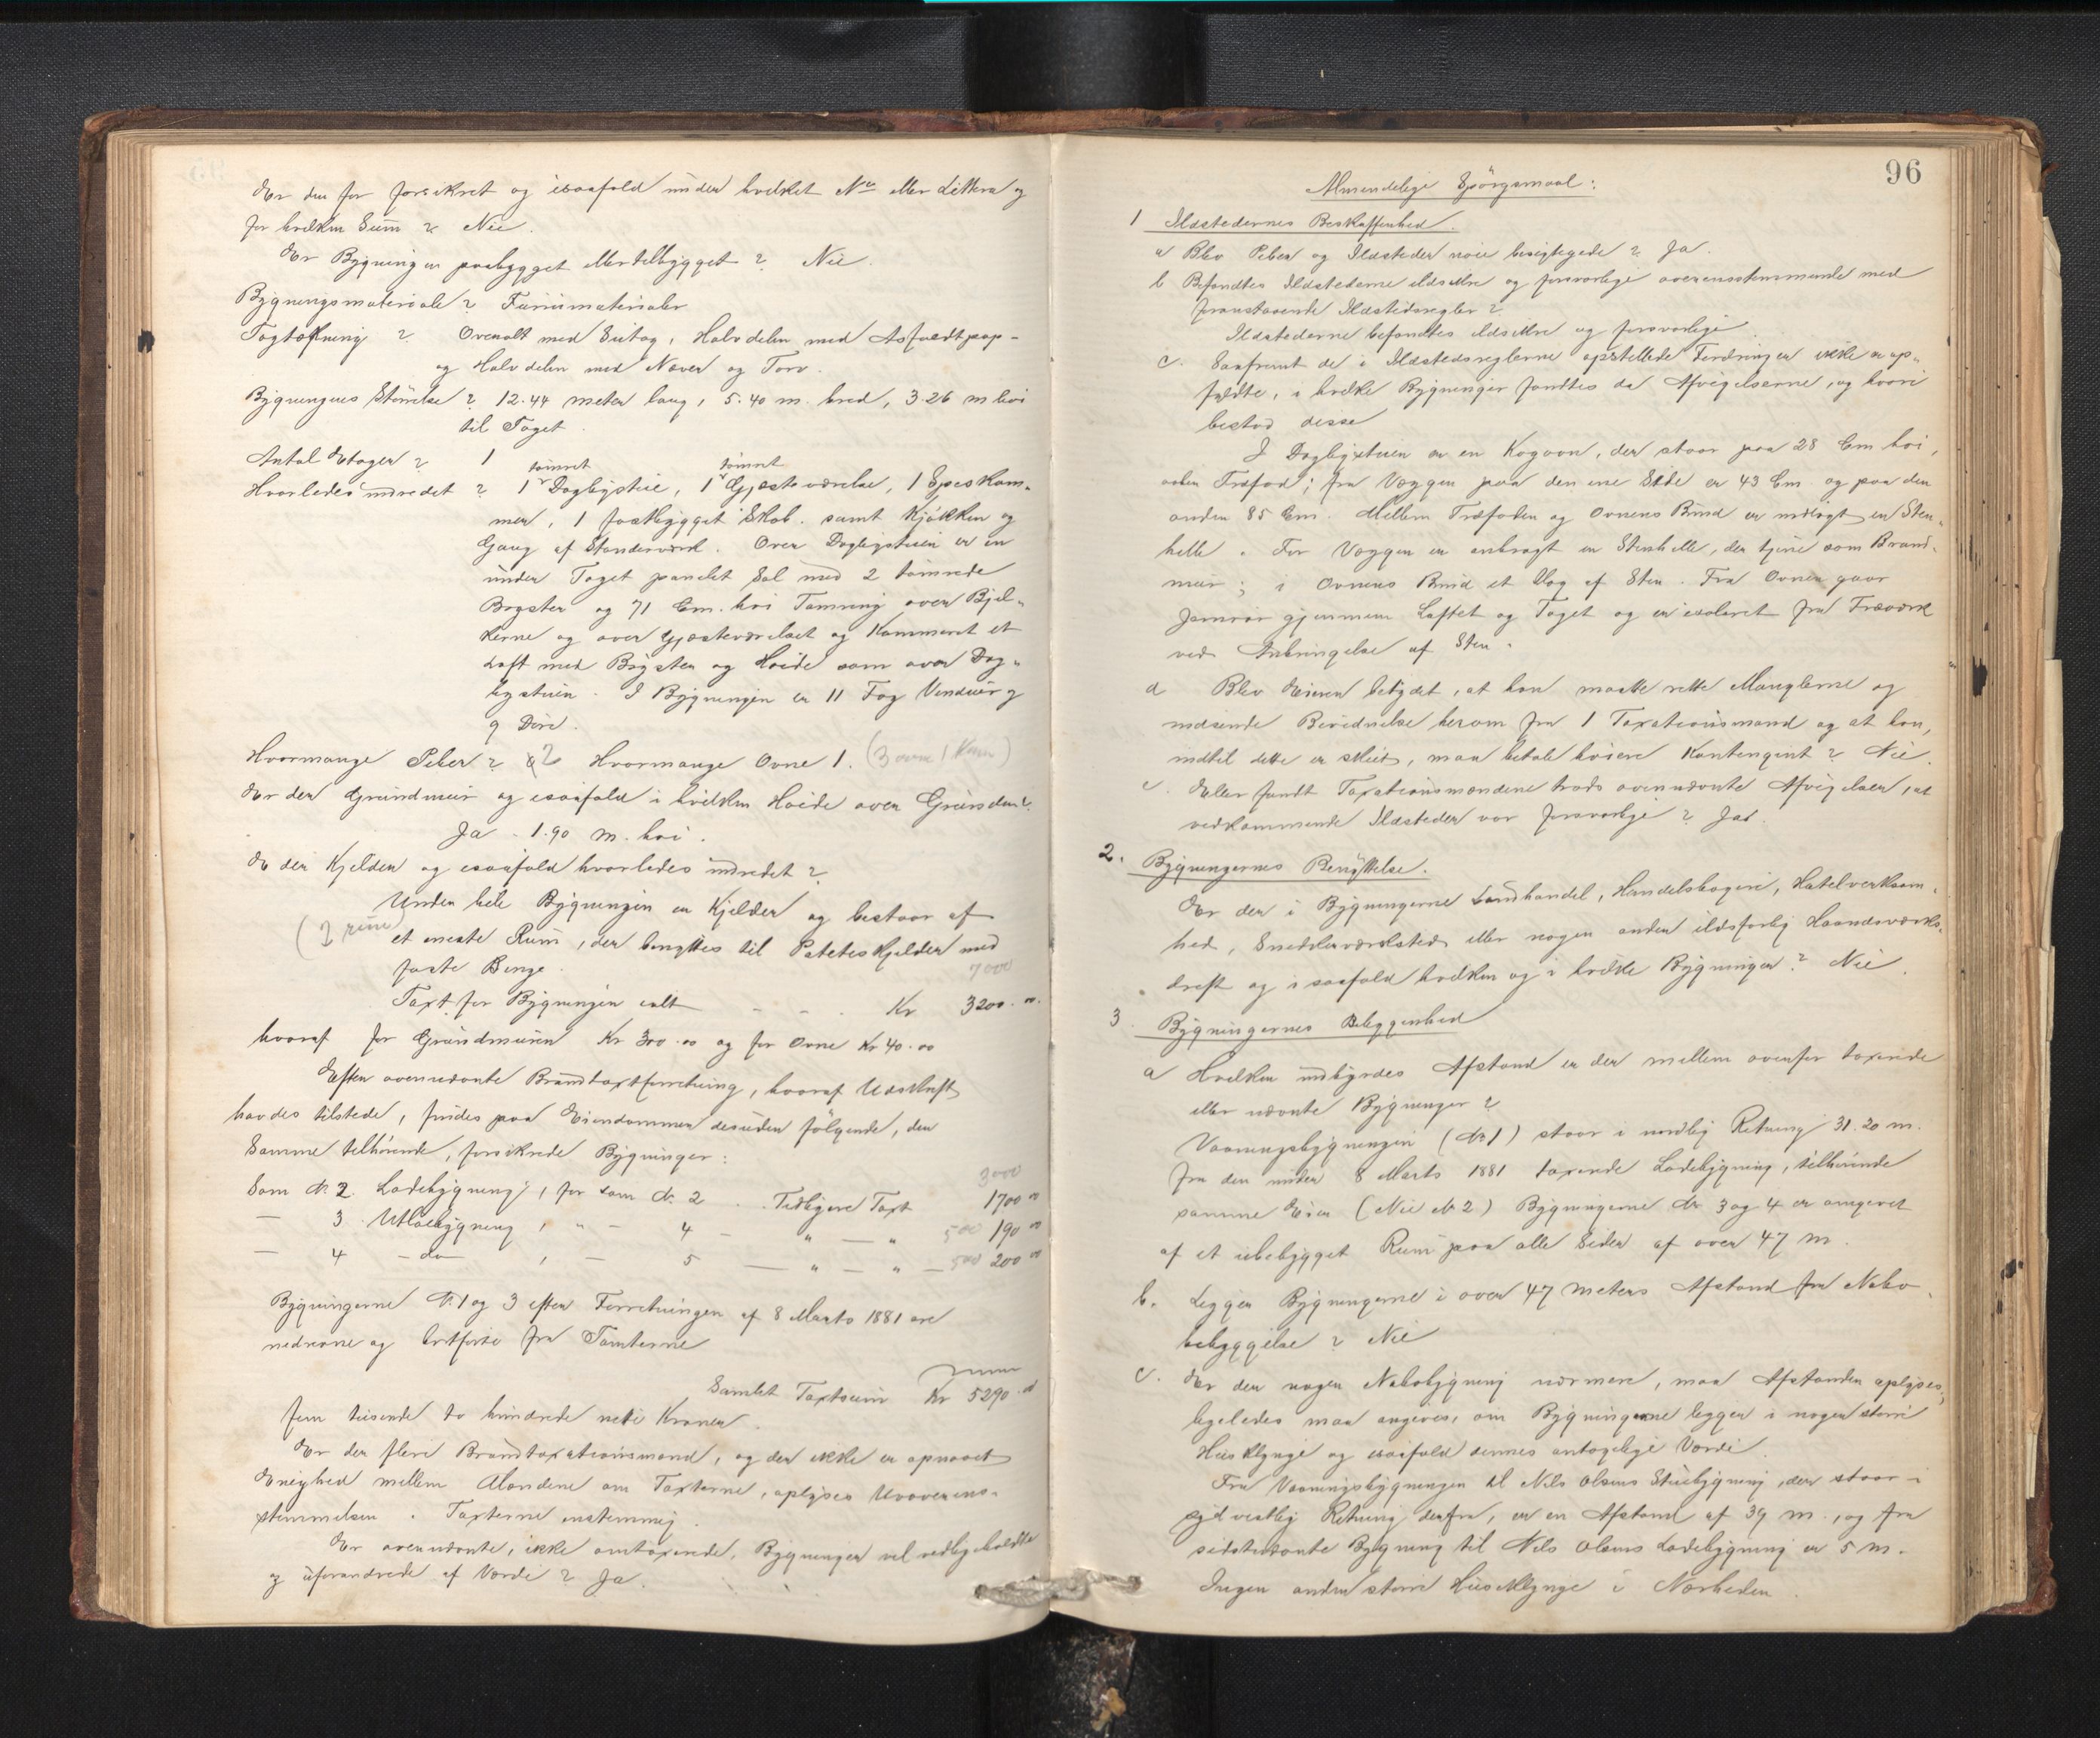 Er den før forsikret og isaafald under hvilket No eller Littera og
for hvilken Sum? Nei.
Er Bygningen paabygget eller tilbygget? Nei.
Bygningsmateriale? Furumaterialer
Tagtækning? Overalt med Sutag, Halvdelen med Asfaldtpap-
og Halvdelen med Næver og Torv.
Bygningens Størrelse? 12.44 meter lang, 5.40 m. bred, 3.26 m høi
til Taget.
Antal Etager? 1
Hvorledes indredet? 1 tømret Dagligstue, 1 tømret Gjesteværelse, 1 Speskam-
mer, 1 fastbygget Skab. samt Kjøkken og
Gang af Standerværk. Over Dagligstuen er en
under Taget panelet Sal med 2 tømrede
Bryster og 71 Cm. høi Tømring over Bjel-
kerne og over Gjesteværelset og Kammeret et
Loft med Bryster og Høide som over Dag-
ligstuen. I Bygningen er 11 Fag Vinduer og
9 Døre.
Hvormange Piber? 2 Hvormange Ovne 1. (3 ovne 1 Kam)
Er der Grundmur og isaafald i hvilken Høide over Grunden?
Ja. 1.90 m. høi.
Er der Kjelder og isaafald hvorledes indredet?
Under hele Bygningen er Kjelder og bestaar af
(2 rum) et eneste Rum, der benyttes til Poteteskjelder med
faste Binge.
7000
Taxt for Bygningen ialt - - . Kr 3200.00.
hvoraf for Grundmuren Kr 300.00 og for Ovne Kr 40.00
Efter ovennævnte Brandtaxtforretning, hvoraf Udskrift
havdes tilstede, findes paa Eiendommen desuden følgende, den
Samme tilhørende, forsikrede Bygninger:
3000
Som No. 2. Ladebygning, før som No. 2. Tidligere Taxt 1700 00
— 3. Utløebygning, " - 4 - " — " 500 190 00
— 4 - do - , — 5 — " — " — 500 200 00
Bygningerne No. 1 og 3 efter Forretningen af 8 Marts 1881 ere
nedrevne og bortførte fra Tomterne
Samlet Taxtsum Kr 5290.00
fem tusende to hundrede nitti Kroner.
Er der flere Brandtaxationsmænd, og der ikke er opnaaet
Enighed mellem Mændene om Taxterne, oplyses Uoverens-
stemmelsen. Taxterne enstemmig.
Er ovennævnte, ikke omtaxerede, Bygninger vel vedligeholdte
og uforandrede af Værde? Ja.
96
Almindelige Spørgsmaal:
1 Ildstedernes Beskaffenhed.
a Blev Piber og Ildsteder nøie besigtigede? Ja.
b Befandtes Ildstederne ildsikre og forsvarlige overensstemmende med
foranstaaende Ildstedsregler?
Ildstederne befandtes ildsikre og forsvarlige.
c. Saafremt de i Ildstedsreglerne opstillede Fordringer ikke er op-
fyldte, i hvilke Bygninger fandtes da Afvigelserne, og hvori
bestod disse
I Dagligstuen er en Kogovn, der staar paa 28 Cm høi,
aaben Træfod; fra Væggen paa den ene Side er 43 Cm. og paa den
anden 85 Cm. Mellem Træfoden og Ovnens Bund er indlagt en Sten-
helle. For Væggen er anbragt en Stenhelle, der tjene som Brand-
mur; i Ovnens Bund et Lag af Sten. Fra Ovnen gaar
Jernrør gjennem Loftet og Taget og er isoleret fra Træværk
ved Anbringelse af Sten.
d Blev Eieren betydet, at han maatte rette Manglerne og
indsende Bevidnelse herom fra 1 Taxationsmand og at han,
indtil dette er skeet, maa betale høiere Kontingent? Nei.
e. Eller fandt Taxationsmændene trods ovennævnte Afvigelser, at
vedkommende Ildsteder var forsvarlige? Ja.
2. Bygningernes Benyttelse.
Er der i Bygningerne Landhandel, Handelsbageri, Hotelverksom-
hed, Snedkerværksted eller nogen anden ildsfarlig Haandværks-
drift og i saafald hvilken og i hvilke Bygninger? Nei.
3. Bygningernes Beliggenhed
a Hvilken indbyrdes Afstand er der mellem ovenfor taxerede
eller nævnte Bygninger?
Vaaningsbygningen (No 1) staar i nordlig Retning 31.20 m.
fra den under 8 Marts 1881 taxerede Ladebygning, tilhørende
samme Eier (Nu No 2) Bygningerne No 3 og 4 er omgivet
af et ubebygget Rum paa alle Sider af over 47 m.
b. Ligger Bygningerne i over 47 meters Afstand fra Nabo-
bebyggelse? Nei
c. Er der nogen Nabobygning nærmere, maa Afstanden oplyses,
ligeledes maa angives, om Bygningerne ligger i nogen større
Husklynge og isaafald dennes antagelige Værdi.
Fra Vaaningsbygningen til Nils Olsens Stuebygning, der staar i
sydvestlig Retning derfra, er en Afstand af 39 m., og fra
sidstnævnte Bygning til Nils Olsens Ladebygning er 5 m.
Ingen anden større Husklynge i Nærheden.